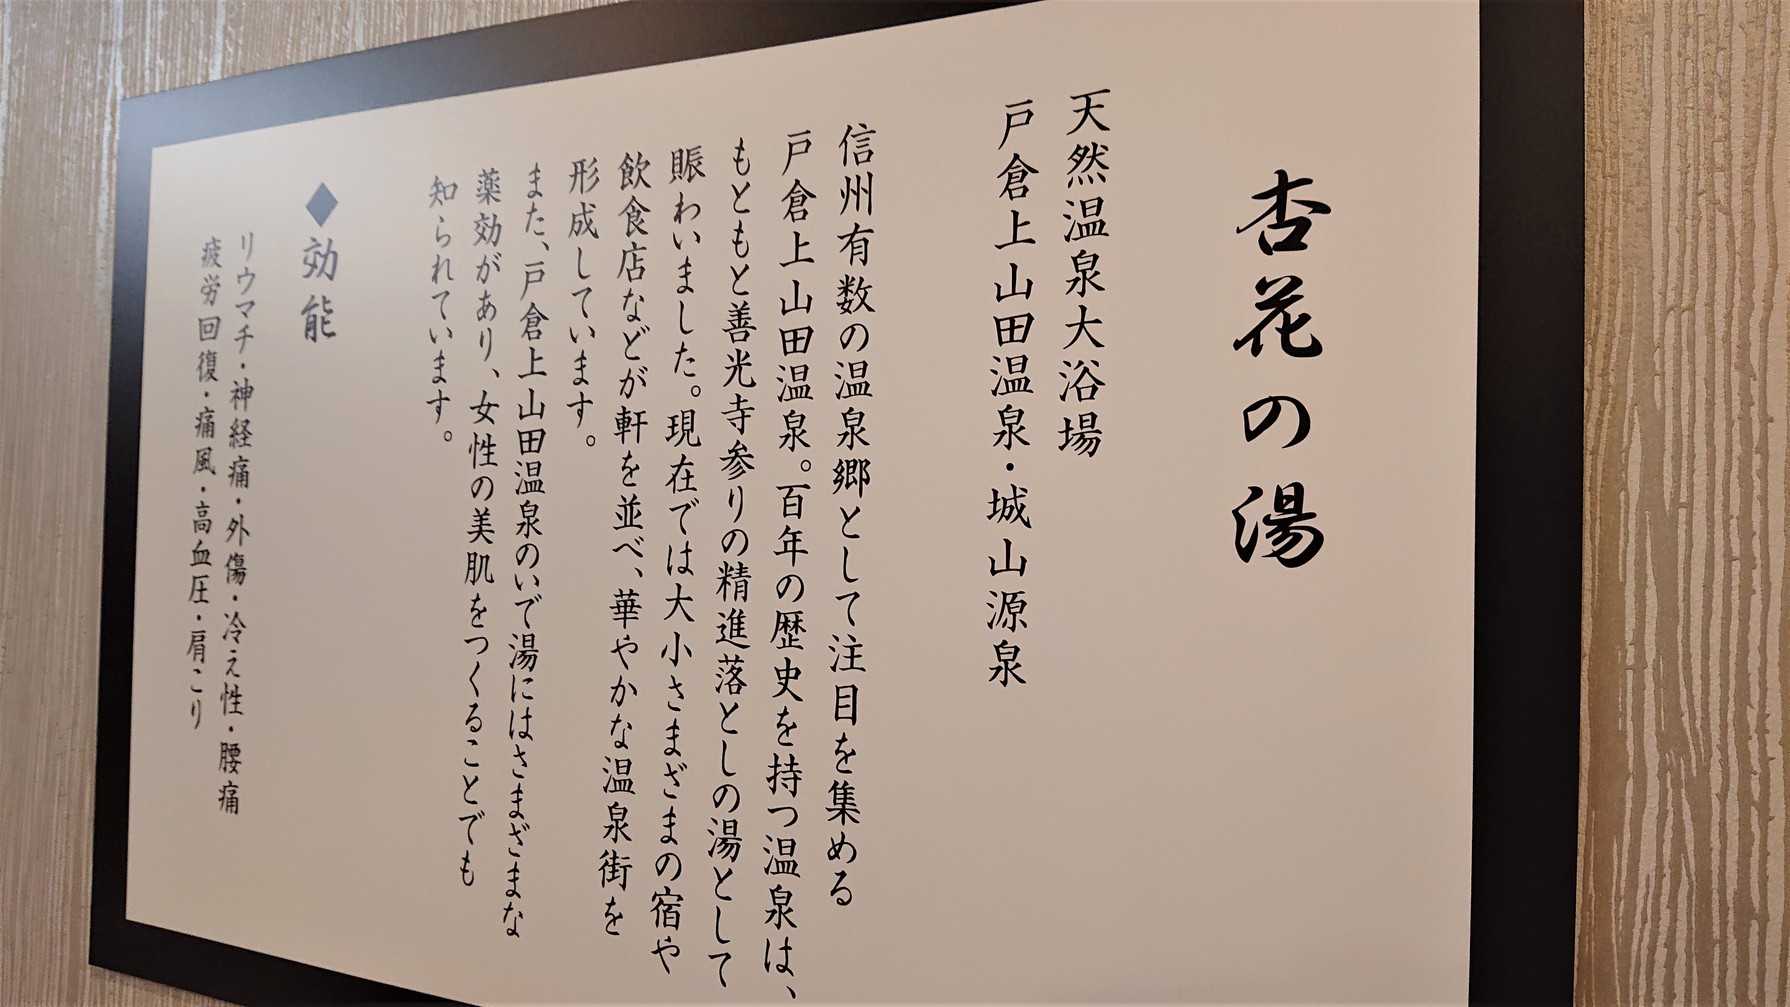 杏花の湯
天然温泉大浴場
戸倉上山田温泉・城山源泉
信州有数の温泉郷として注目を集める
戸倉上山田温泉。百年の歴史を持つ温泉は、
もともと善光寺参りの精進落としの湯として
賑わいました。現在では大小さまざまの宿や
飲食店などが軒を並べ、華やかな温泉街を
形成しています。
また、戸倉上山田温泉のいで湯にはさまざまな
薬効があり、女性の美肌をつくることでも
知られています。
◆効能
リウマチ・神経痛・外傷・冷え性・腰痛
疲労回復・痛風・高血圧・肩こり